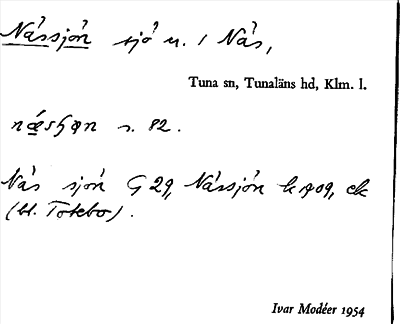 Nåssjön sjö n. / Nås,
Tuna sn, Tunaläns hd, Klm. l.
s. 82.
Nås sjön G 29, Nåssjön k 1909, ek
(bl. Totebo).
Ivar Modéer 1954